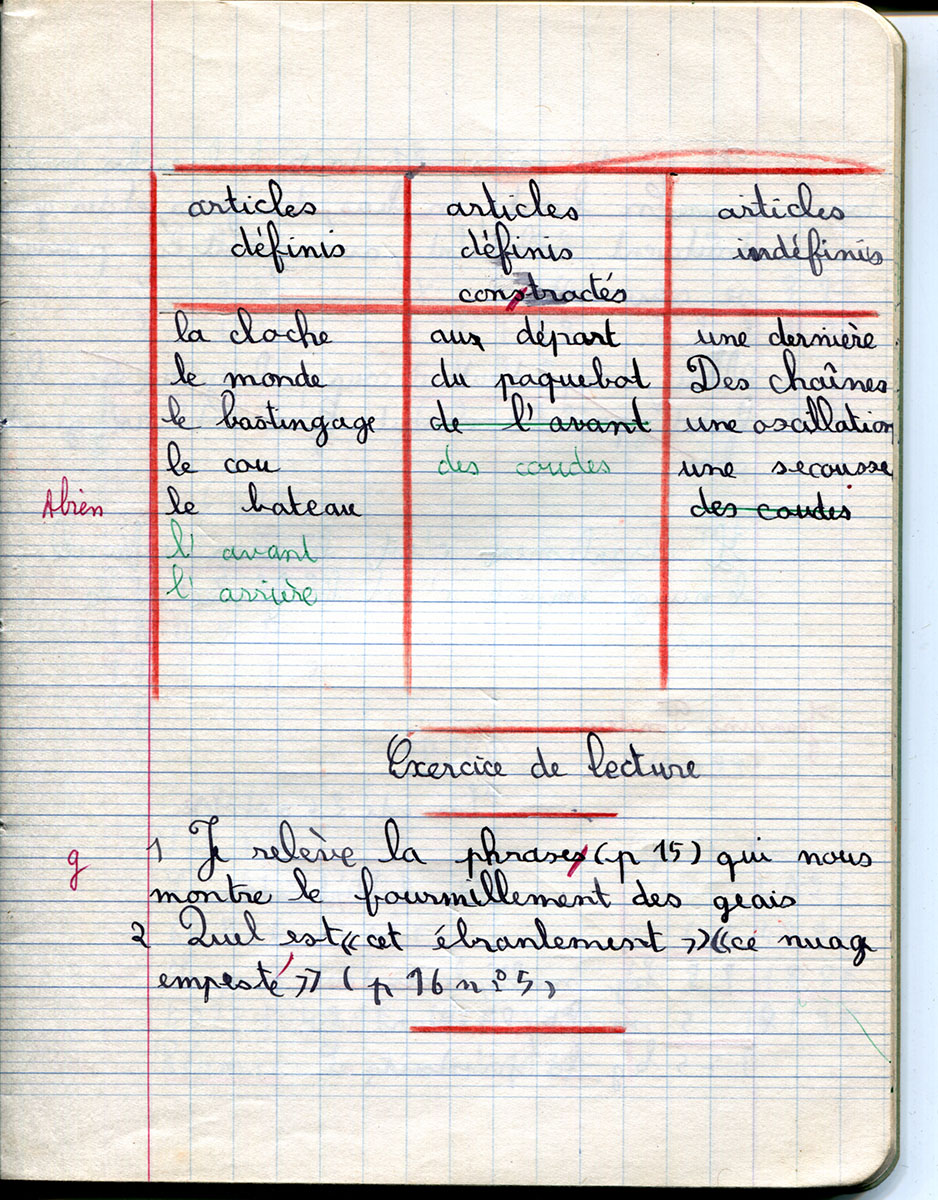 articles articles articles
définis définis indéfinis
constractés
la cloche aux départ une dernière
le monde du paquebot Des chaînes
le bastingage de l'avant une oscillation
le cou des coudes une secousse
Abien le bateau des coudes
l'avant
l'arrière
Exercice de lecture
g 1 Je relève la phrases (p 15) qui nous
montre le fourmillement des geais
2 Quel est «cet ébranlement» «ce nuage
empesté» (p 16 n°5)